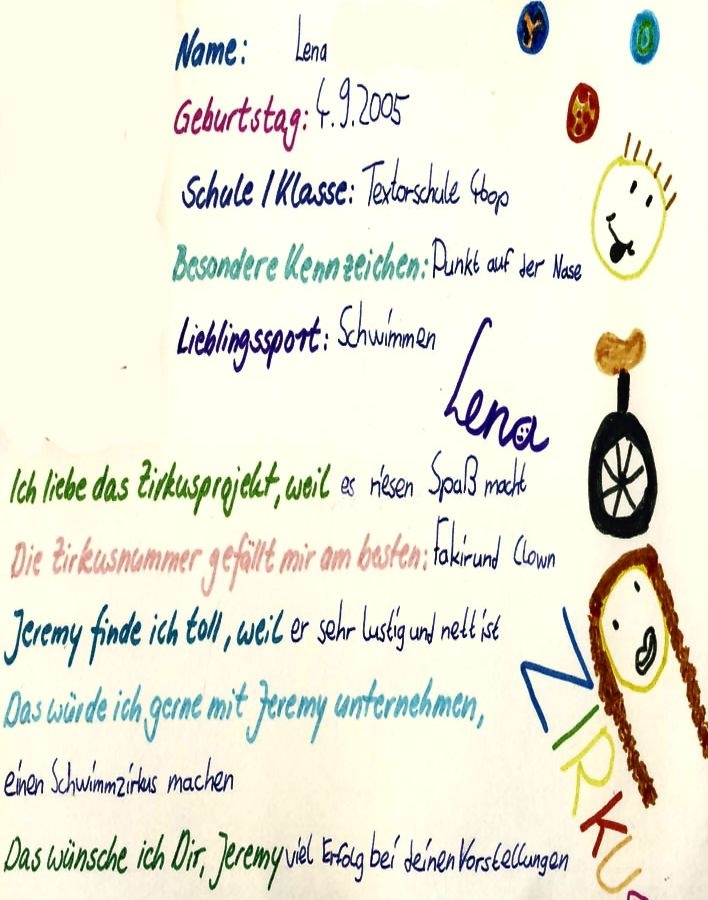 Name: Lena
Geburtstag: 4.9.2005
Schule / Klasse: Textorschule 4bop
Besondere Kennzeichen: Punkt auf der Nase
Lieblingssport: Schwimmen
Lena
Ich liebe das Zirkusprojekt, weil es riesen Spaß macht
Die Zirkusnummer gefällt mir am besten: Fakir und Clown
Jeremy finde ich toll, weil er sehr lustig und nett ist
Das würde ich gerne mit Jeremy unternehmen,
einen Schwimmzirkus machen
Das wünsche ich Dir, Jeremy viel Erfolg bei deinen Vorstellungen
ZIRKUS